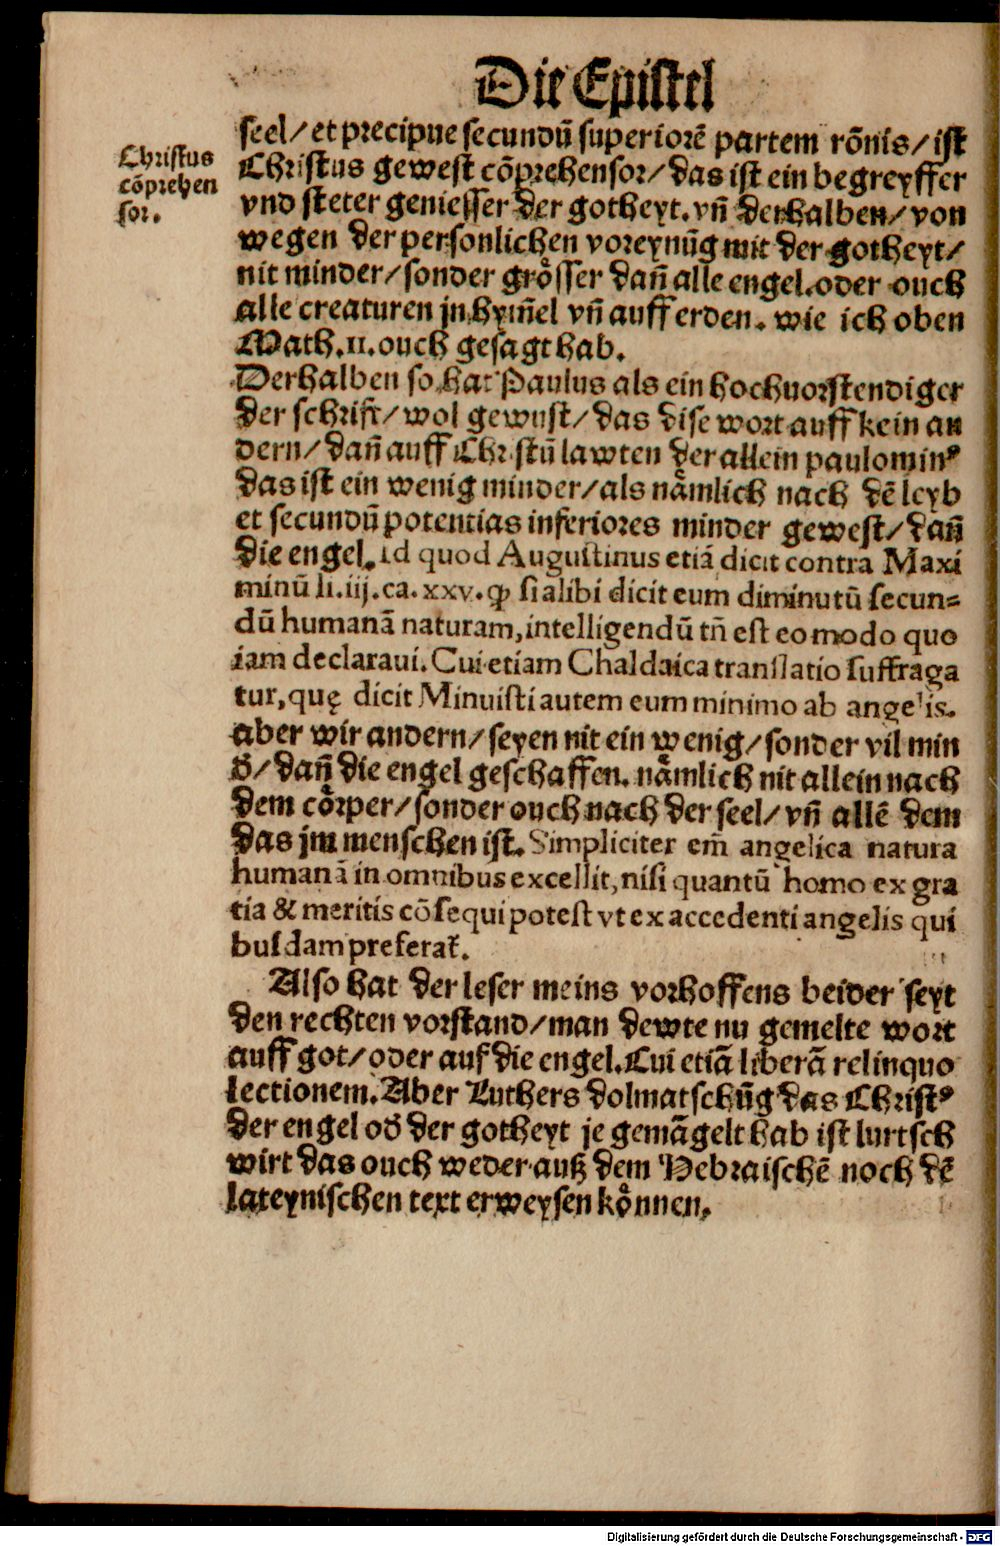 Die Epistel
Christus
cõprehen
sor.
seel/ et precipue secundũ superiorẽ partem rõnis/ ist
Christus gewest cõprehensor/ das ist ein begreyffer
vnd steter geniesser der gotheyt. vñ derhalben/ von
wegen der personlichen voreynũg mit der gotheyt/
nit minder/ sonder grösser dañ alle engel. oder ouch
alle creaturen jn hym̃el vñ auff erden. wie ich oben
Math. 11. ouch gesagt hab.
Derhalben so hat Paulus als ein hochuorstendiger
der schrift/ wol gewust/ das dise wort auff kein an
dern/ dañ auff Christũ lawten der allein paulominꝰ
das ist ein wenig minder/ als nämlich nach dẽ leyb
et secundũ potentias inferiores minder gewest/ dañ
die engel. id quod Augustinus etiã dicit contra Maxi
minũ li. iij. ca. xxv. ꝙ si alibi dicit eum diminutũ secun⸗
dũ humanã naturam, intelligendũ tñ est eo modo quo
iam declaraui. Cui etiam Chaldaica translatio suffraga
tur, quę dicit Minuisti autem eum minimo ab angelis.
aber wir andern/ seyen nit ein wenig/ sonder vil min
d̃/ dañ die engel geschaffen. nämlich nit allein nach
dem cörper/ sonder ouch nach der seel/ vñ allẽ dem
das jm menschen ist. Simpliciter em̃ angelica natura
humanã in omnibus excellit, nisi quantũ homo ex gra
tia & meritis cõsequi potest vt ex accedenti angelis qui
busdam preferat᷑.
Also hat der leser meins vorhoffens beider seyt
den rechten vorstand/ man dewte nu gemelte wort
auff got/ oder auf die engel. Cui etiã liberã relinquo
lectionem. Aber Luthers dolmatschũg das Christꝰ
der engel od̃ der gotheyt je gemãgelt hab ist lurtsch
wirt das ouch weder autz dem Hebraischẽ noch dẽ
lateynischen text erweysen können.
Digitalisierung gefördert durch die Deutsche Forschungsgemeinschaft - DFG